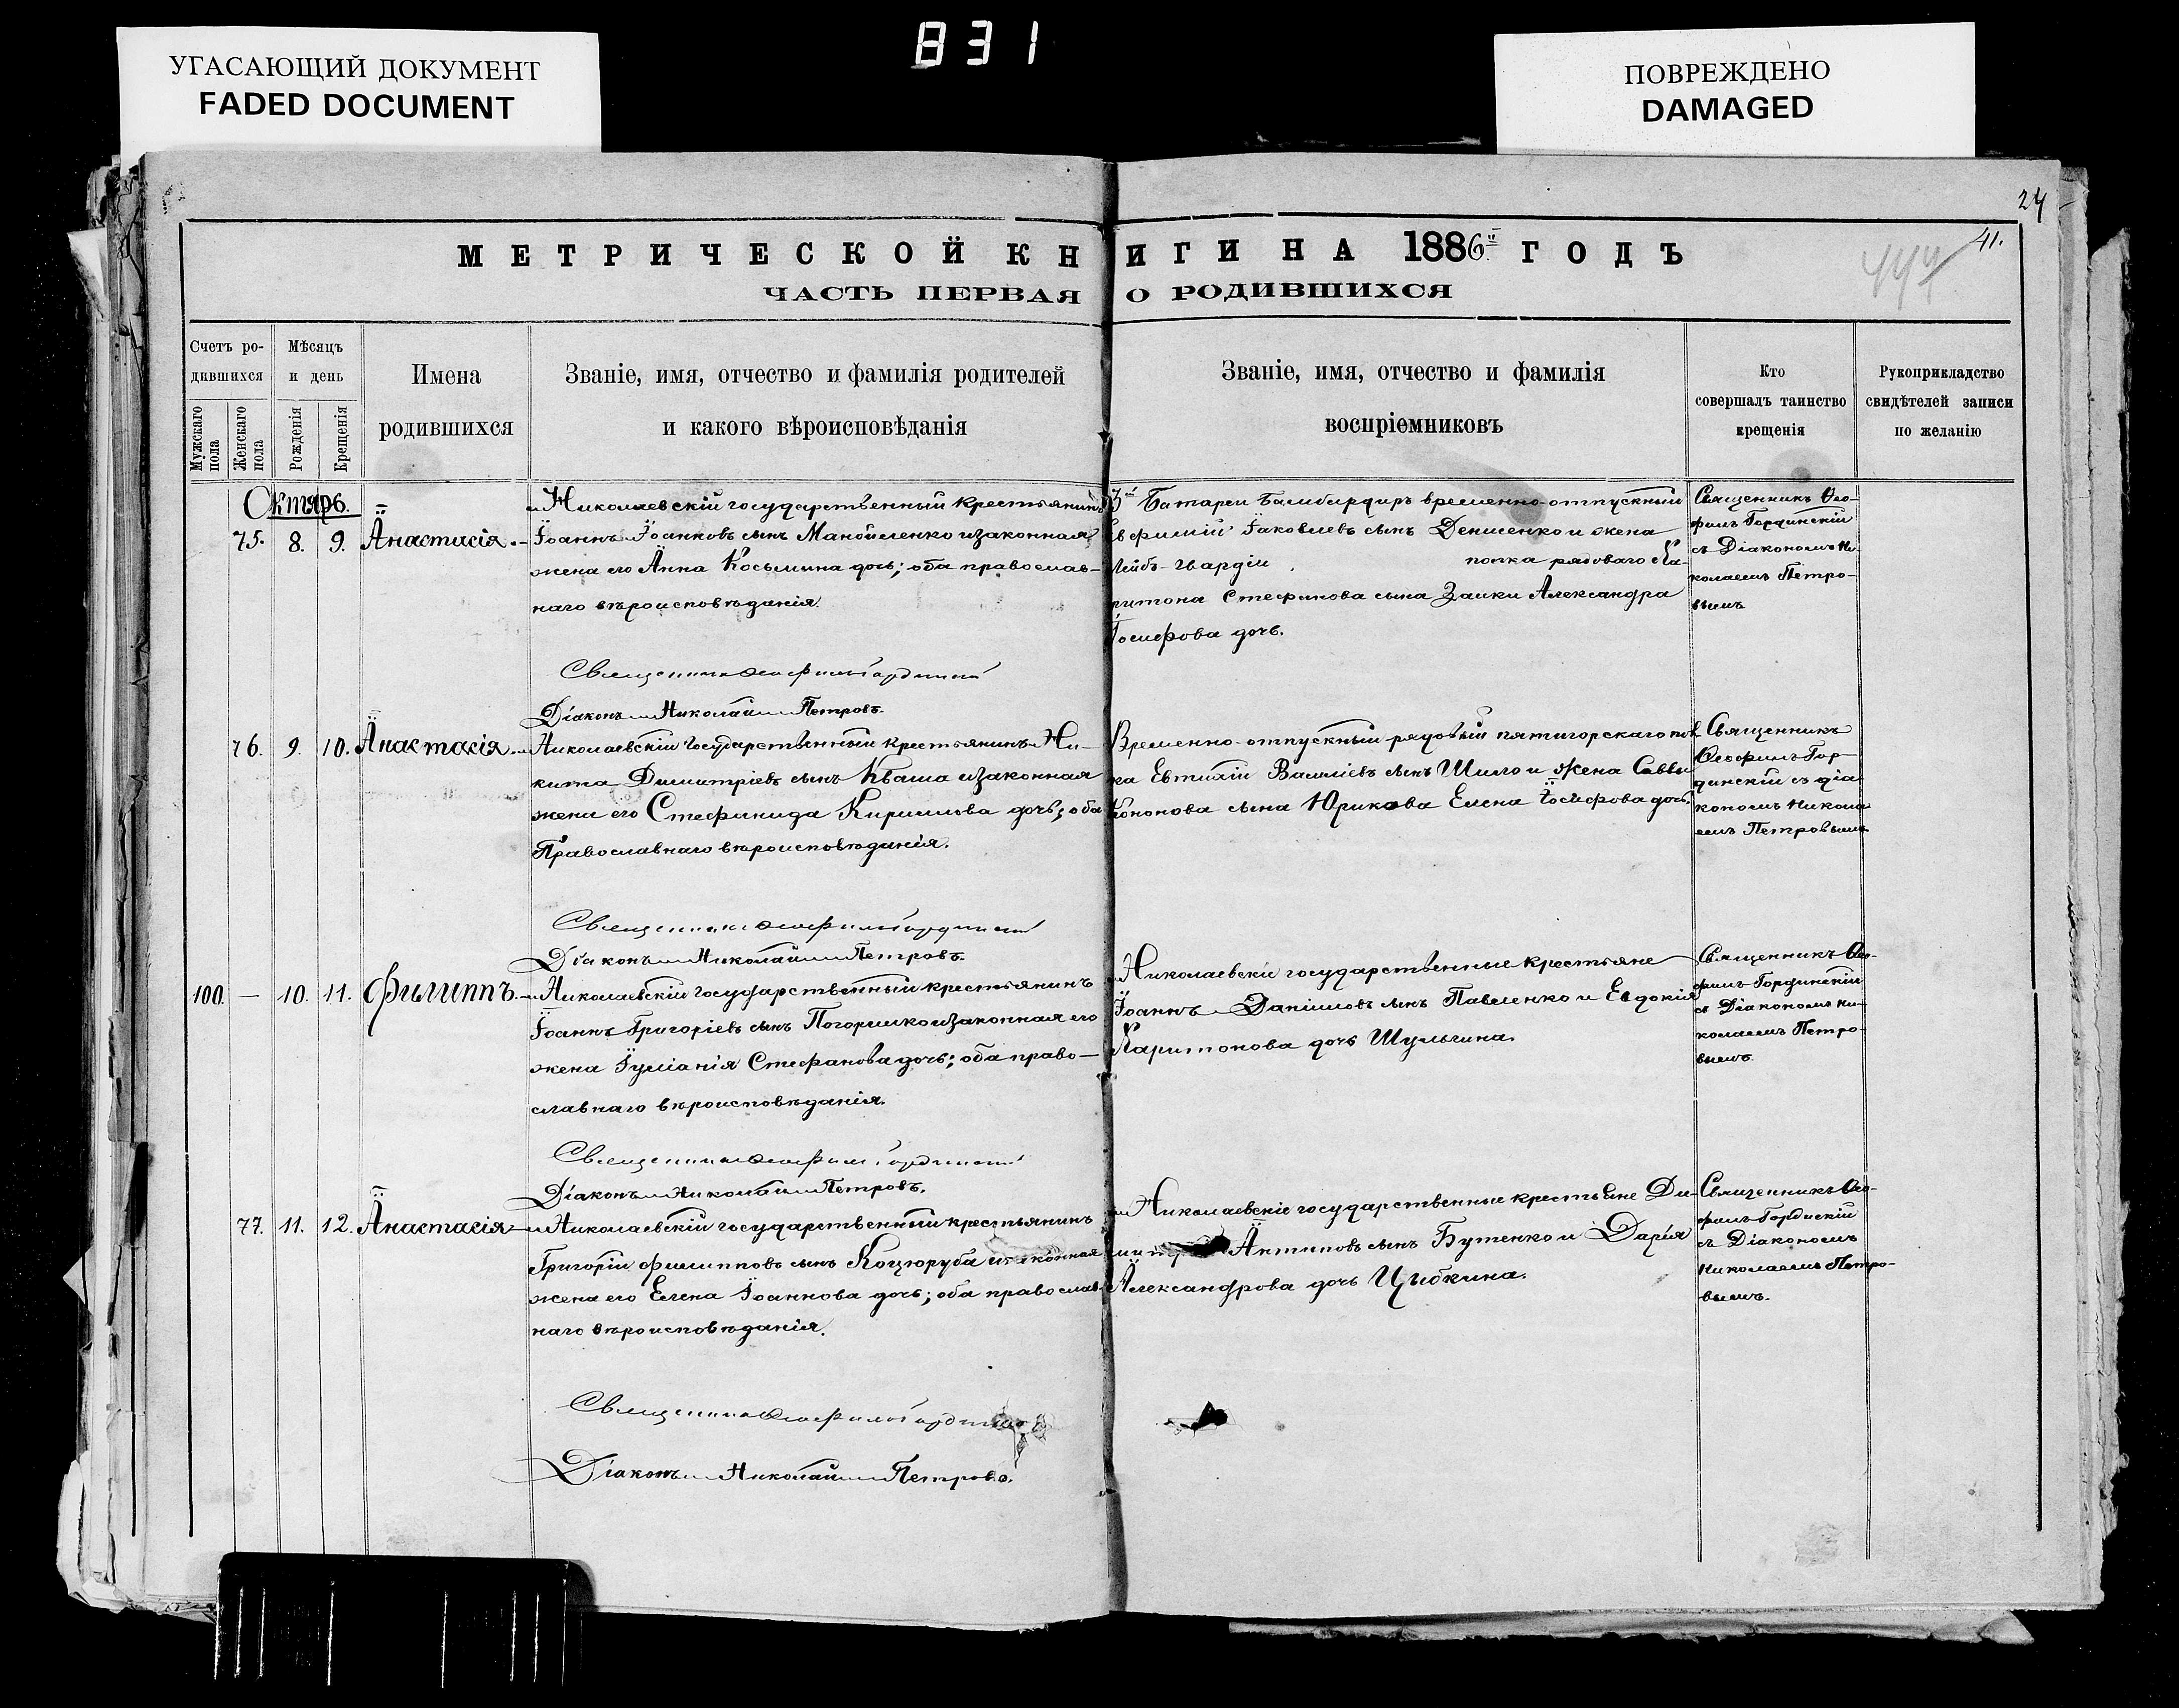 831
УГАСАЮЩИЙ ДОКУМЕНТ
FADED DOCUMENT
ПОВРЕЖДЕНО
DAMAGED
24
41.
МЕТРИЧЕСКОЙ КНИГИ НА 1886й ГОДЪ
ЧАСТЬ ПЕРВАЯ О РОДИВШИХСЯ
Счетъ ро-
дившихся
Мужскаго пола
Женскаго пола
Мѣсяцъ
и день
Рожденія
Крещенія
Имена
родившихся
Званіе, имя, отчество и фамилія родителей
и какого вѣроисповѣданія
Званіе, имя, отчество и фамилія
воспріемниковъ
Кто
совершалъ таинство
крещенія
Рукоприкладство
свидѣтелей записи
по желанію
Октяр.
75. 8. 9. Анастасія.
Николаевскій государственный крестьянинъ
Іоаннъ Іоанновъ сынъ Манойленко и законная
жена его Анна Косьмина дочь; оба православ-
наго вѣроисповѣданія.
3й Батареи Бамбардиръ временно-отпускный
Евфимій Іаковлевъ сынъ Денисенко и жена
Лейбъ-Гвардіи полка рядоваго Ха-
ритона Стефанова сына Заики Александра
Іосифова дочь.
Священникъ Ѳео-
филъ Гординскій
съ Діакономъ Ни-
колаемъ Петро-
вымъ
Священникъ Ѳеофилъ Гординскій
Діаконъ Николай Петровъ.
76. 9. 10. Анастасія.
Николаевскій государственный крестьянинъ Ни-
кита Димитріевъ сынъ Кваша и законная
жена его Стефанида Кириллова дочь; оба
Православнаго вѣроисповѣданія.
Временно-отпускный рядовый пятигорскаго пол
ка Евтихій Васильевъ сынъ Шило и жена Саввы
Кононова сына Юрикова Елена Іосифова дочь.
Священникъ
Ѳеофилъ Гор-
динскій съ діа-
кономъ Никола
емъ Петровымъ
Священникъ Ѳеофилъ Гординскій
Діаконъ Николай Петровъ.
100. — 10. 11. Филиппъ.
Николаевскій государственный крестьянинъ
Іоаннъ Григоріевъ сынъ Погорилко и законная его
жена Іуліанія Стефанова дочь; оба право-
славнаго вѣроисповѣданія.
Николаевскіе государственные крестьяне
Іоаннъ Даніиловъ сынъ Павленко и Евдокія
Харитонова дочь Шульгина.
Священникъ Ѳео-
филъ Гординскій
съ Діакономъ Ни-
колаемъ Петро-
вымъ.
Священникъ Ѳеофилъ Гординскій
Діаконъ Николай Петровъ.
77. 11. 12. Анастасія
Николаевскій государственный крестьянинъ
Григорій Филипповъ сынъ Коцюруба и законная
жена его Елена Іоаннова дочь; оба православ-
наго вѣроисповѣданія.
Николаевскіе государственные крестьяне Ди-
митрій Антиповъ сынъ Бутенко и Дарія
Александрова дочь Цыбкина.
Священникъ Ѳео-
филъ Гординскій
съ Діакономъ
Николаемъ Петро-
вымъ.
Священникъ Ѳеофилъ Гординскій
Діаконъ Николай Петровъ.